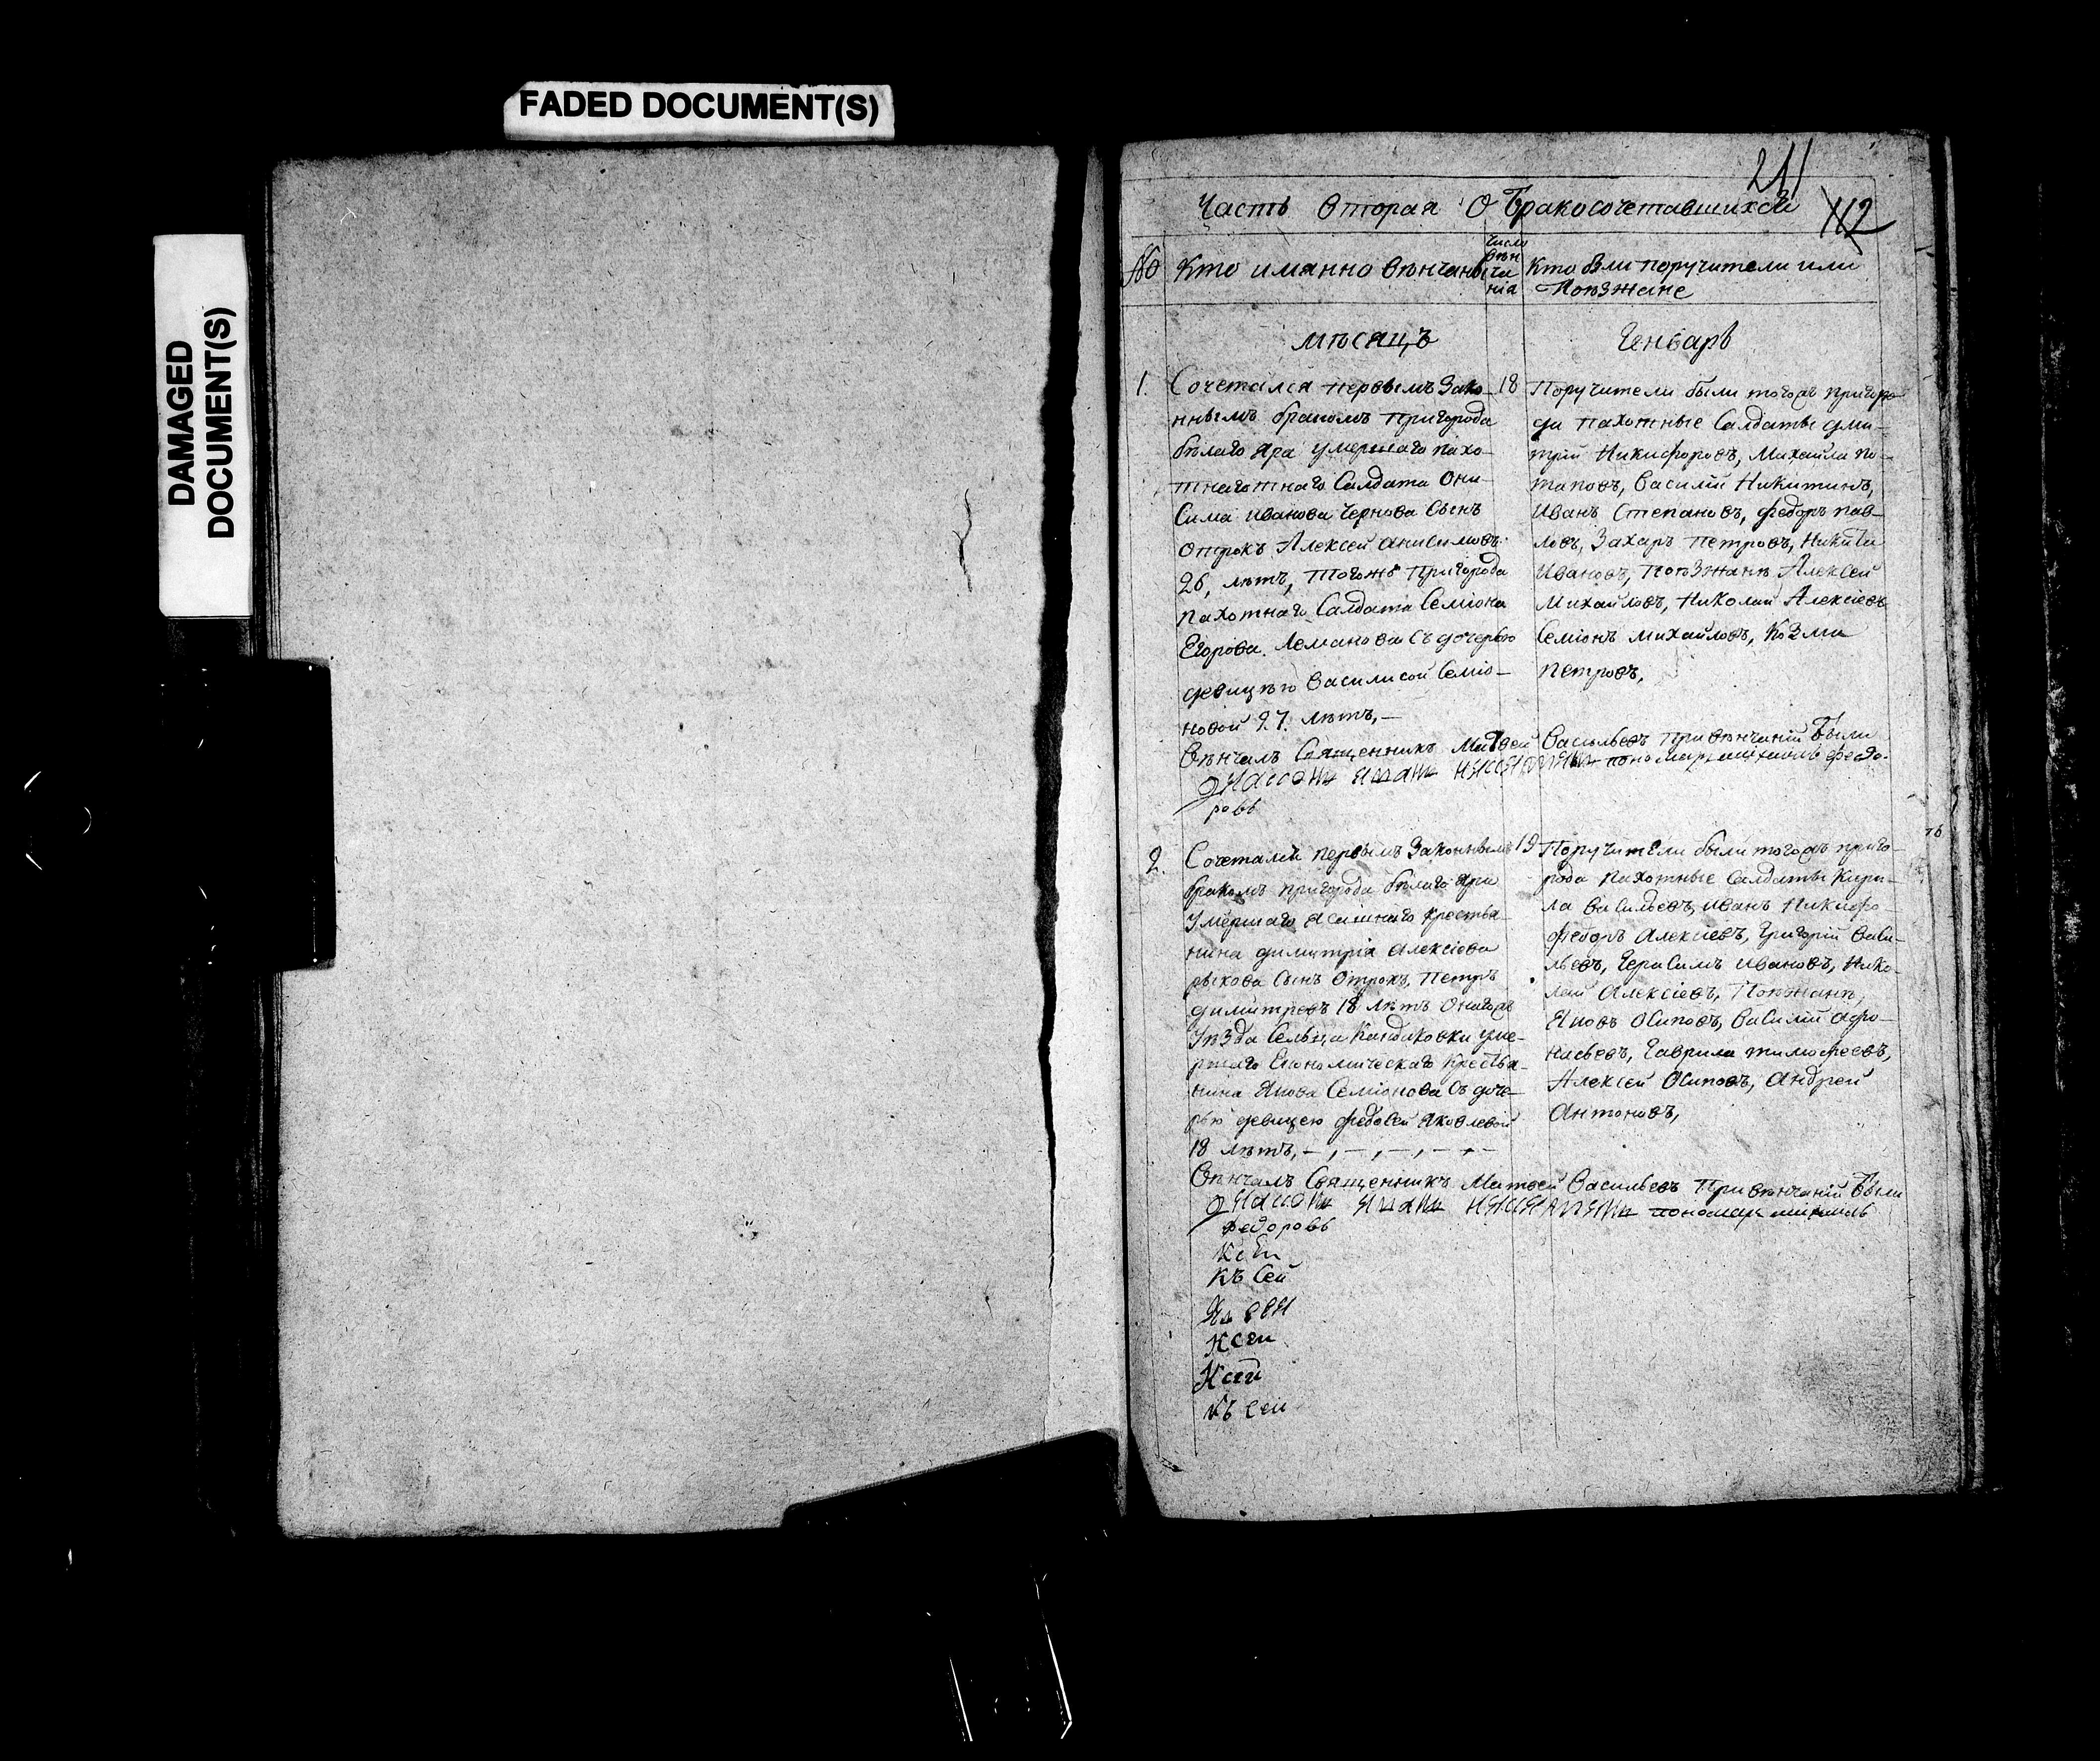 FADED DOCUMENT(S)
DAMAGED
DOCUMENT(S)
211
112
Часть Вторая О Бракосочетавшихся
№
Кто имянно Вѣнчаны
число
вѣн
ча
нія
Кто были поручители или
Поѣзжане
мѣсяцъ
Генварь
1.
Сочетался первымъ Зако-
ннымъ бракомъ пригорода
бѣлаго яра умершаго пахо-
тнаготнаго Салдата Они-
Сима иванова Чернова Сынъ
отрокъ Алексей анисимовъ
26, лѣтъ, тогожъ пригорода
пахотнаго Салдата Семіона
Егорова Леманова съ дочерью
девицею Василисой Семіо-
новой 27. лѣтъ,-
18
Поручители были тогожъ пригоро
да пахотные Салдаты дми-
трій Никифоровъ, Михайла по-
таповъ, Василій Никитинъ,
Иванъ Степановъ, федоръ пав-
ловъ, Захаръ петровъ, Никита
Ивановъ, поѣзжанѣ Алексей
Михайловъ, Николай Алексіевъ
Семіонъ Михайловъ, Козма
петровъ,
Вѣнчалъ Священникъ Матвей Васильевъ При вѣнчаніи были
пономарь михаилъ федо-
ровъ
2.
Сочетался первымъ Законнымъ
бракомъ пригорода бѣлаго яра
Умершаго ясашнаго крестья-
нина димитрія Алексіева
рыкова Сынъ Отрокъ, Петръ
димитревъ 18 лѣтъ Онагожъ
Уѣзда Сельца Кандаковки уме-
ршаго Економическаго Крестья-
нина Якова Семіонова Съ доче-
рью девицею федосей Яковлевой
18 лѣтъ,-,-,-,-,-
19
Поручители были тогожъ приго-
рода Пахотные Салдаты Кири-
ла васильевъ, иванъ Никифо-
федоръ Алексіевъ, Григорій Васи-
льевъ, Герасимъ ивановъ, Нико-
лай Алексіевъ, Поѣзжанѣ,
Яковъ Осиповъ, Василій афо-
насьевъ, Гаврила тимофеевъ,
Алексей Осиповъ, Андрей
Антоновъ,
Вѣнчалъ Священникъ Матвей Васильевъ При вѣнчаніи были
пономарь михаилъ
федоровъ
Ксей
Къ Сей
Ксеи
Ксей
Къ сеи